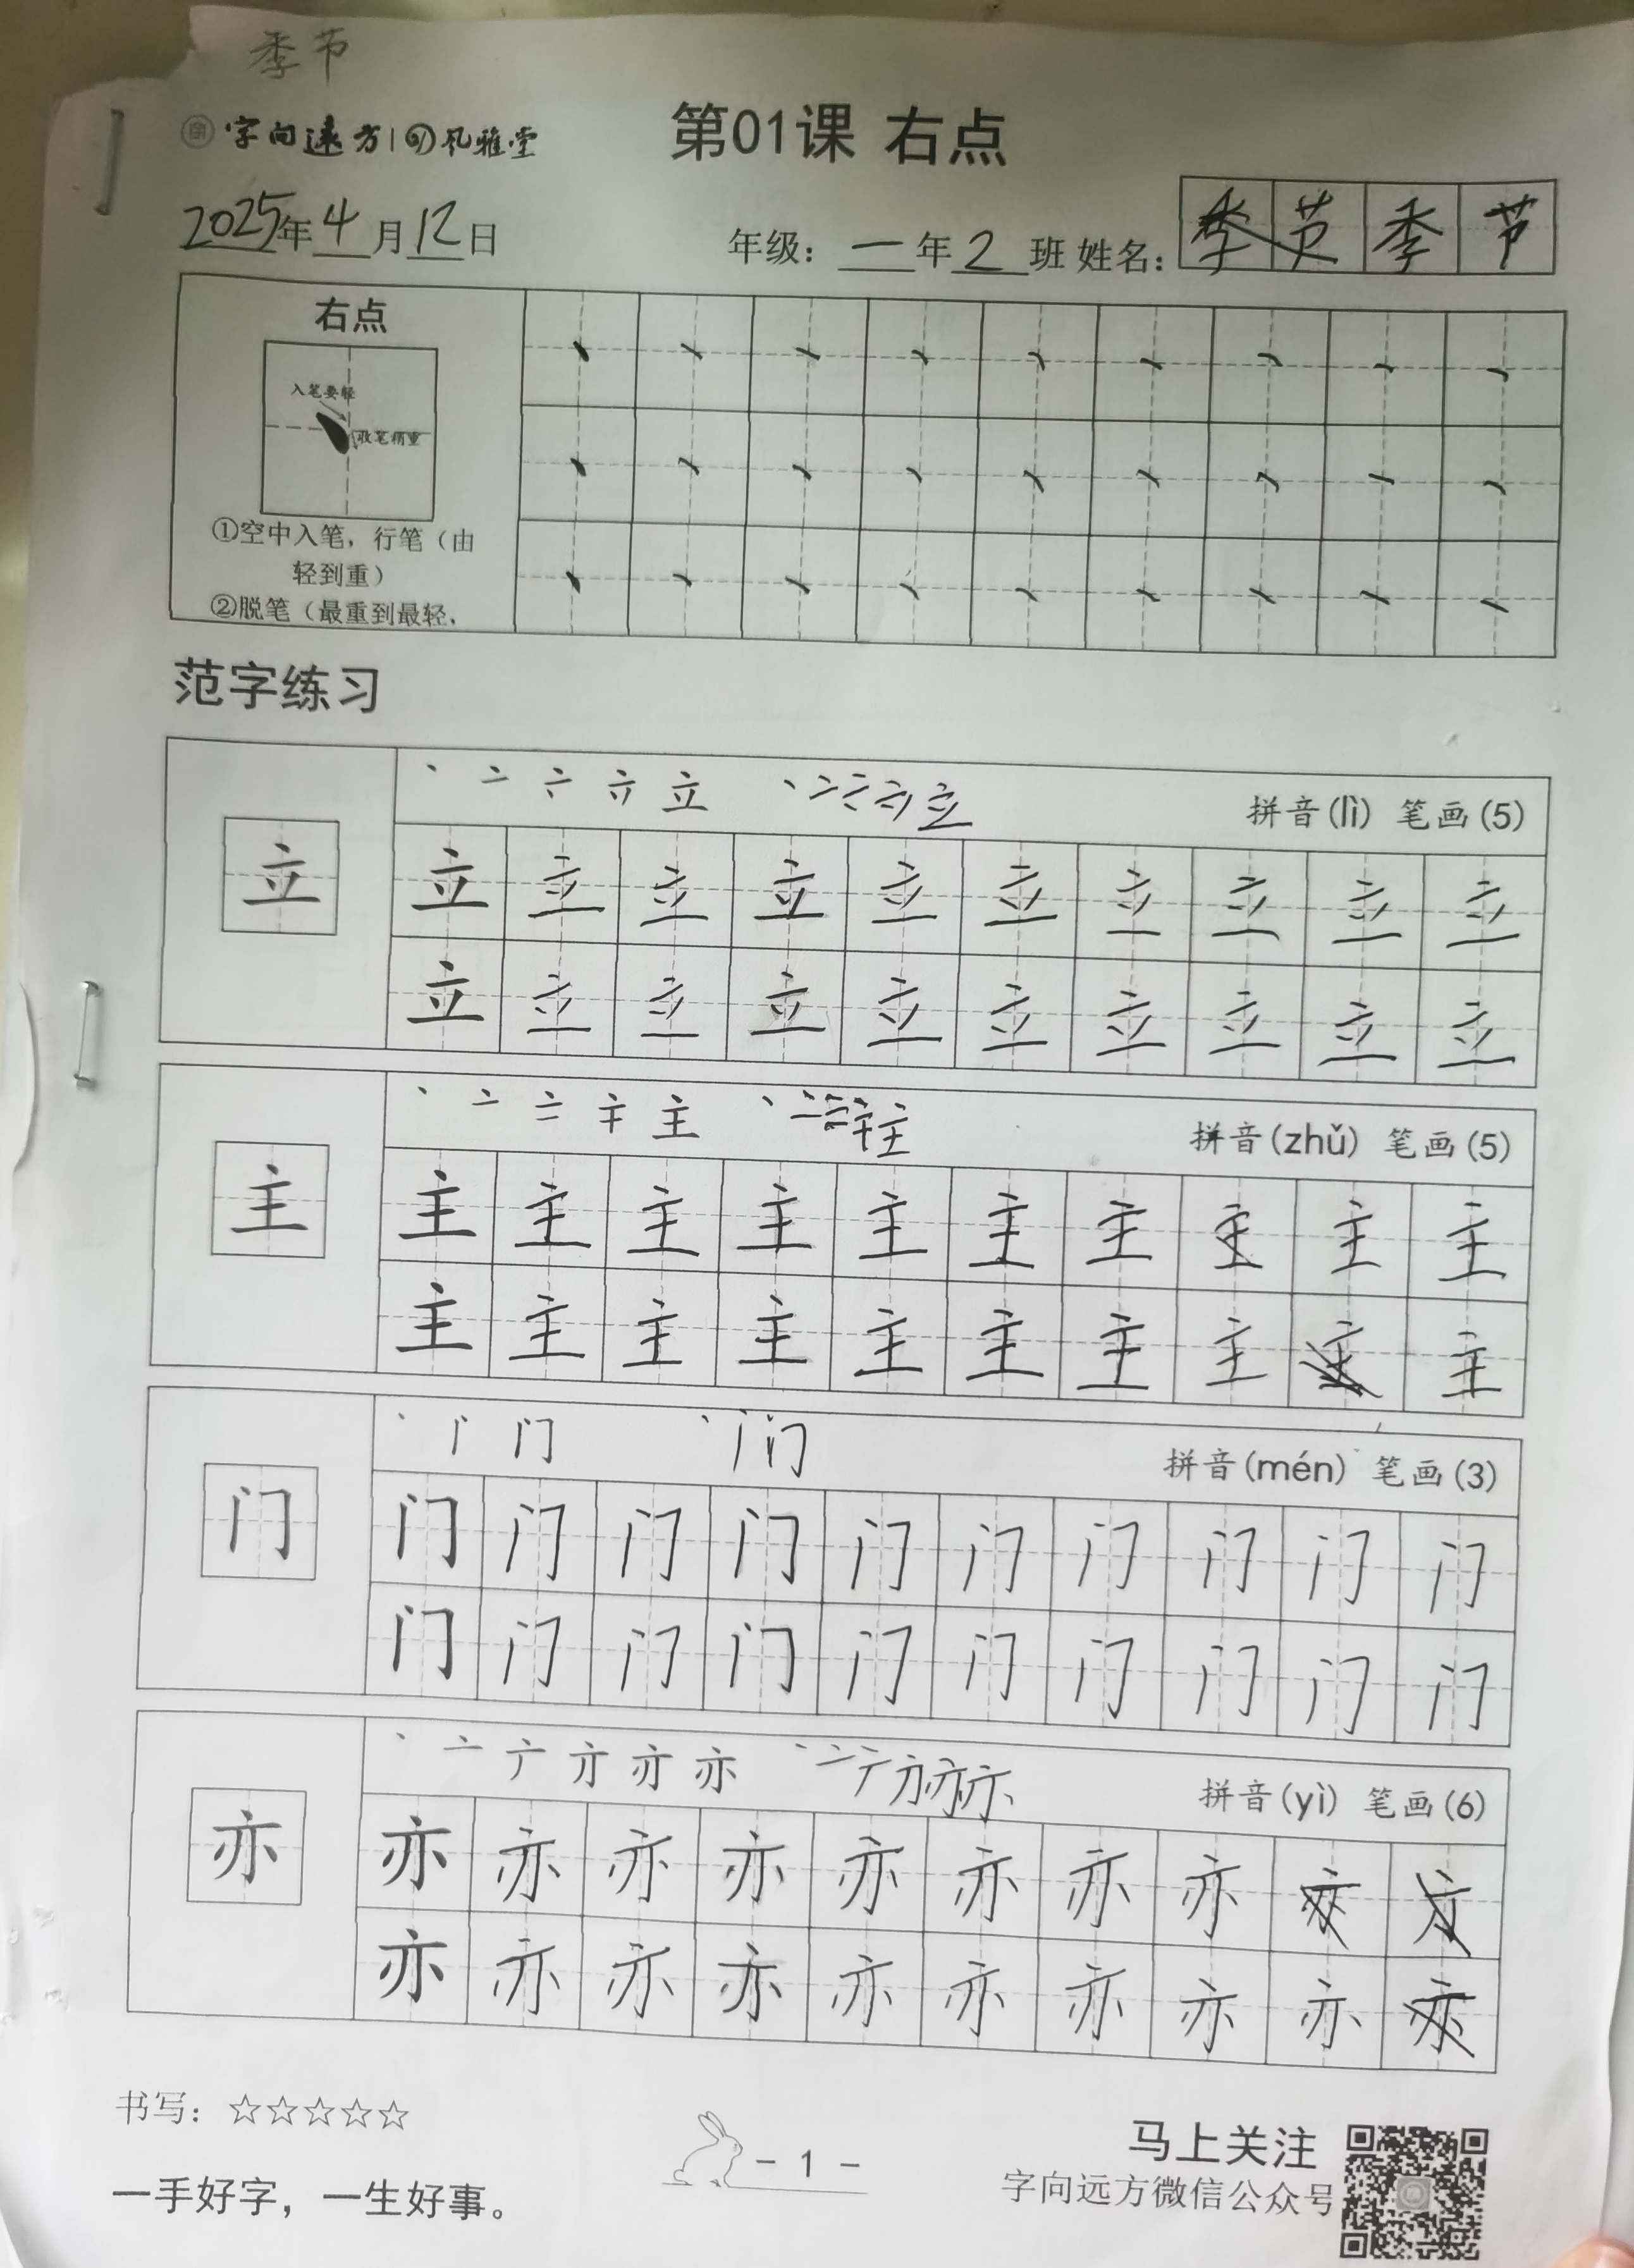 季节
字向远方 孔雅堂
第01课 右点
2025年4月12日 年级：一年2班 姓名： 季 节 季 节
右点
入笔要轻
收笔稍重
①空中入笔，行笔（由
轻到重）
②脱笔（最重到最轻，
范字练习
立 拼音(lì) 笔画(5)
立 立 立 立 立 立 立 立 立 立 立
立 立 立 立 立 立 立 立 立 立
主 拼音(zhǔ) 笔画(5)
主 主 主 主 主 主 主 主 主 主 主
主 主 主 主 主 主 主 主 主 主
门 门 拼音(mén) 笔画(3)
门 门 门 门 门 门 门 门 门 门 门
门 门 门 门 门 门 门 门 门 门
亦 亦 拼音(yì) 笔画(6)
亦 亦 亦 亦 亦 亦 亦 亦 亦 亦
亦 亦 亦 亦 亦 亦 亦 亦 亦 亦
书写：☆☆☆☆☆
- 1 -
马上关注
一手好字，一生好事。
字向远方微信公众号